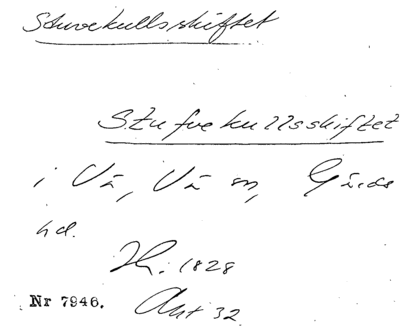 Stuvekullsskiftet
Stufvekullsskiftet
i Vä, Vä sn, Gärds
hd.
H. 1828
Nr 7946. Akt 32